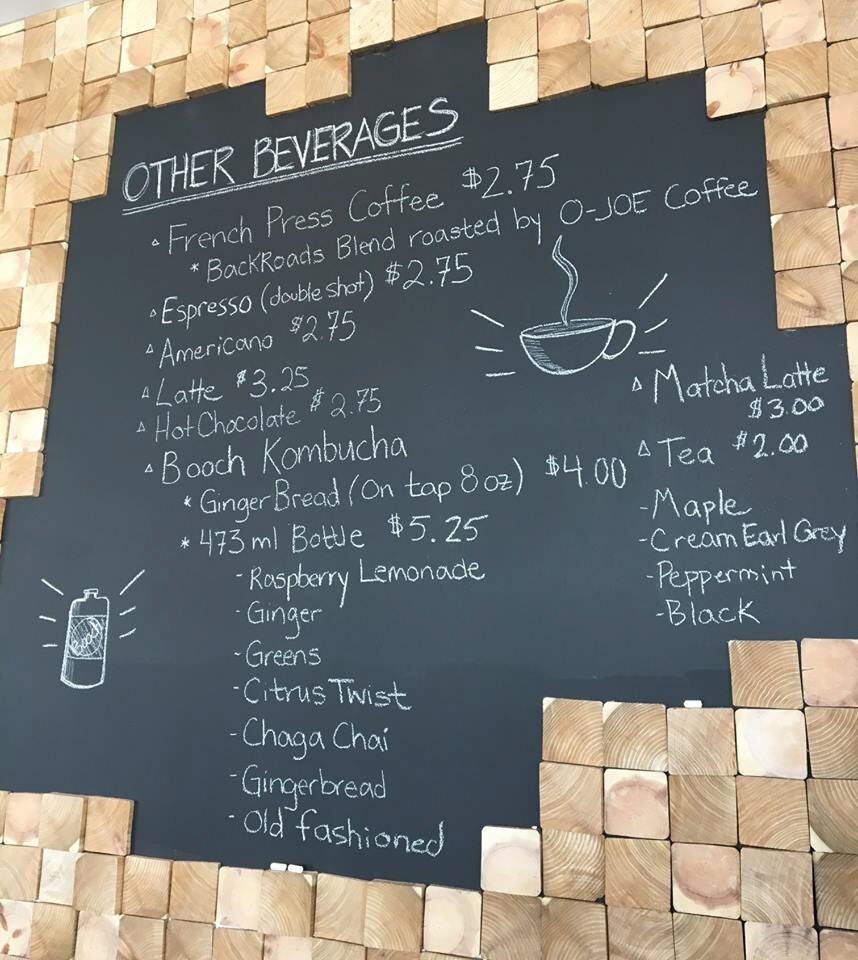 OTHER BEVERAGES
▵ French Press Coffee $2.75
* BackRoads Blend roasted by O-JOE Coffee
▵ Espresso (double shot) $2.75
▵ Americano $2.75
▵ Latte $3.25
▵ Hot Chocolate $2.75
▵ Booch Kombucha
* GingerBread (On tap 8 oz) $4.00
* 473 ml Bottle $5.25
- Raspberry Lemonade
- Ginger
- Greens
- Citrus Twist
- Chaga Chai
- Gingerbread
- Old fashioned
▵ Matcha Latte
$3.00
▵ Tea $2.00
- Maple
- Cream Earl Grey
- Peppermint
- Black